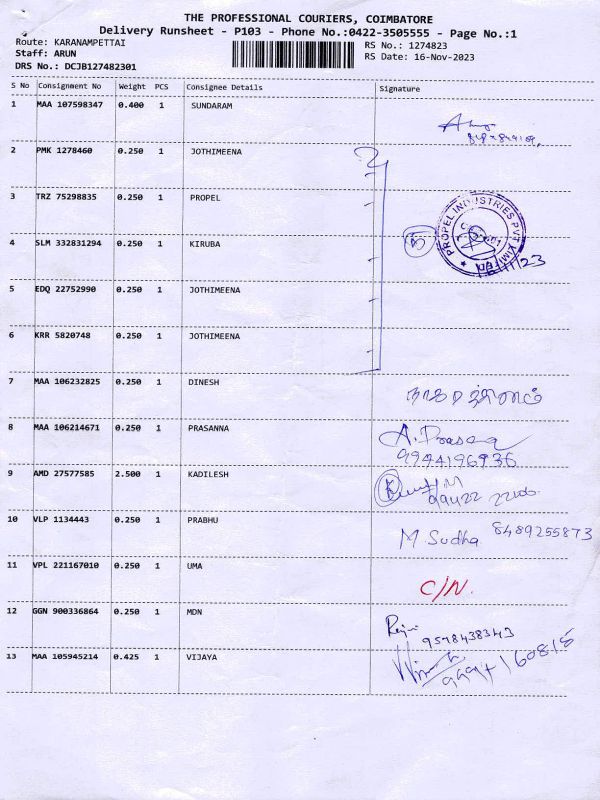 THE PROFESSIONAL COURIERS, COIMBATORE
Delivery Runsheet - P103 - Phone No.:0422-3505555 - Page No.:1
Route: KARANAMPETTAI RS No.: 1274823
Staff: ARUN RS Date: 16-Nov-2023
DRS No.: DCJB127482301
S No Consignment No Weight PCS Consignee Details Signature
1 MAA 107598347 0.400 1 SUNDARAM
2 PMK 1278460 0.250 1 JOTHIMEENA
3 TRZ 75298835 0.250 1 PROPEL
PROPEL INDUSTRIES PVT
4 SLM 332831294 0.250 1 KIRUBA 5
5 EDQ 22752990 0.250 1 JOTHIMEENA
6 KRR 5820748 0.250 1 JOTHIMEENA
7 MAA 106232825 0.250 1 DINESH
8 MAA 106214671 0.250 1 PRASANNA A. Prasanna
9944196936
9 AMD 27577585 2.500 1 KADILESH
10 VLP 1134443 0.250 1 PRABHU M Sudha 8489255873
11 VPL 221167010 0.250 1 UMA C/N.
12 GGN 900336864 0.250 1 MDN
9598438343
13 MAA 105945214 0.425 1 VIJAYA